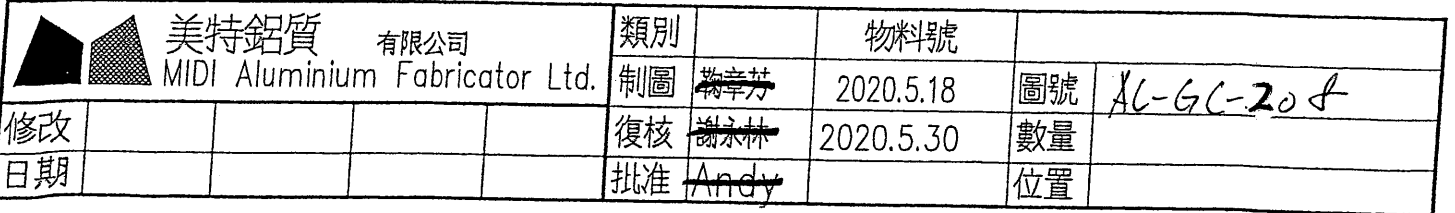 美特鋁質 有限公司
MIDI Aluminium Fabricator Ltd.
類別 物料號
制圖 鞠章芳 2020.5.18 圖號 AC-GC-208
修改 復核 謝永林 2020.5.30 數量
日期 批准 Andy 位置